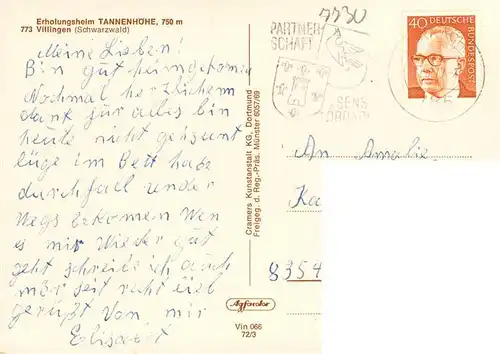 Erholungsheim TANNENHÖHE, 750 m
773 Villingen (Schwarzwald)
Meine Lieben!
Bin gut heimgekomen
Nochmal herzlichem
dank für alles bin
heute nicht gehsunt
lüge im Bett habe
durchfall under
wegs bekomen Wen
es mir Wieder gut
geht schreibe ich auch
mer seit recht lieb
gerüßt Von mir
Elisabet
Cramers Kunstanstalt KG, Dortmund
Freigeg. d. Reg.-Präs. Münster 6057/69
Agfacolor
Vin 066
72/3
7730
PARTNER
SCHAFT
40
DEUTSCHE
BUNDESPOST
An Amalie
Ka
8354